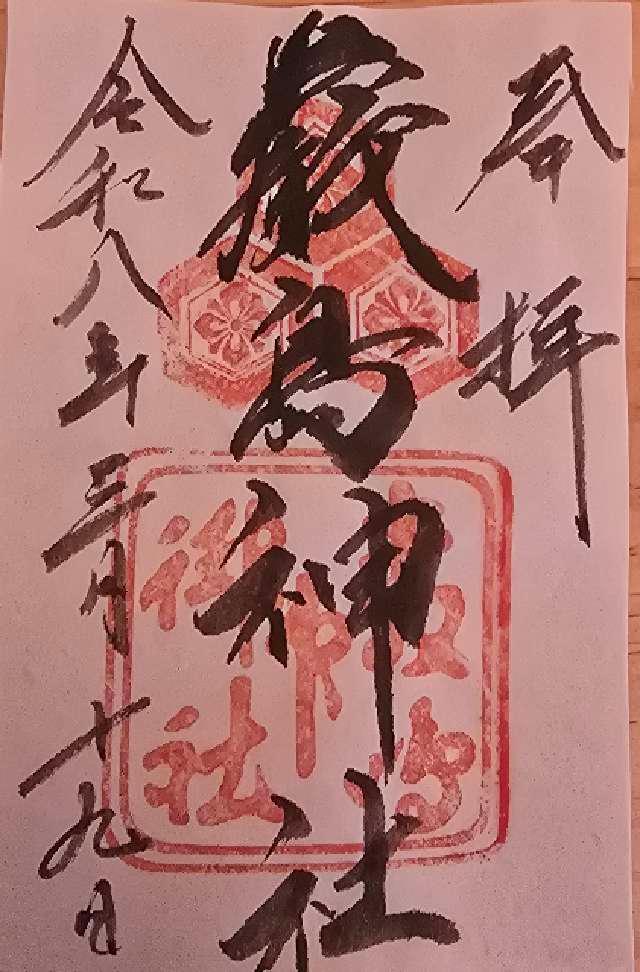 奉拝
厳島神社
令和八年三月十九日
厳島
神社